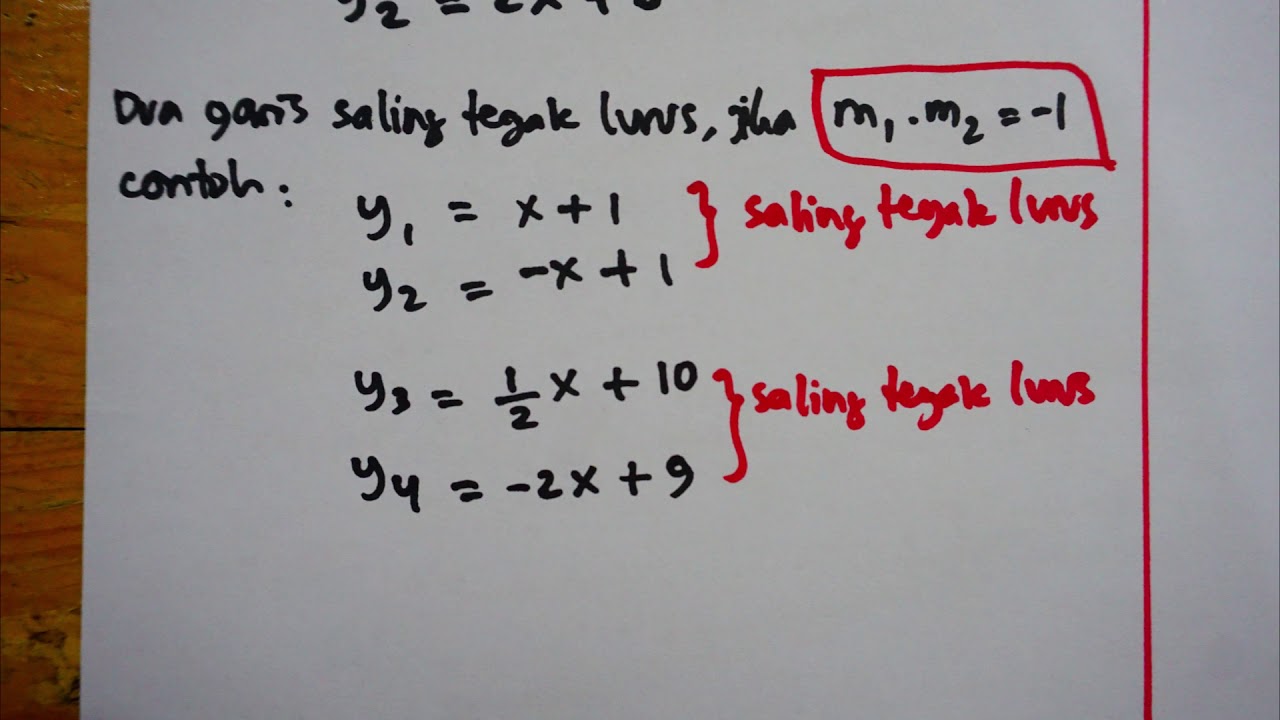 y₂ = 2x +
Dua garis saling tegak lurus, jika m₁ . m₂ = -1
contoh :
y₁ = x + 1 } saling tegak lurus
y₂ = -x + 1
y₃ = 1/2 x + 10 } saling tegak lurus
y₄ = -2x + 9